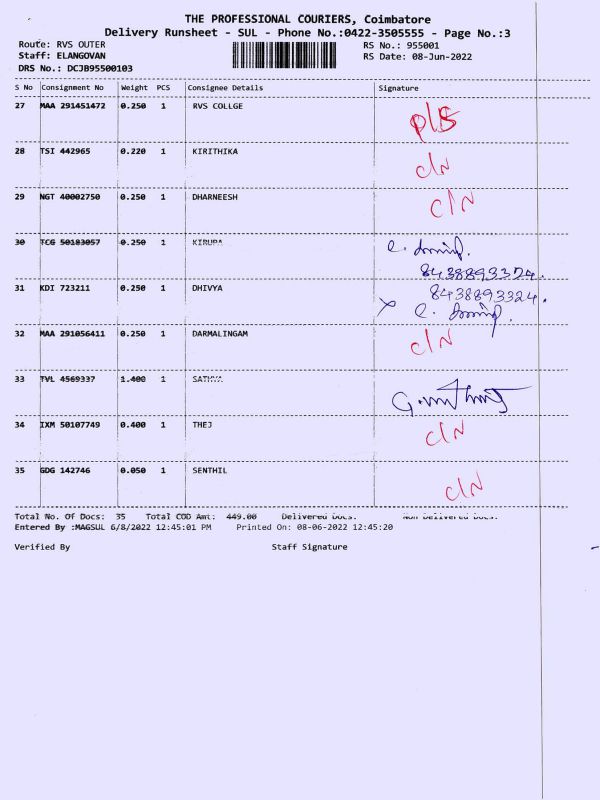 THE PROFESSIONAL COURIERS, Coimbatore
Delivery Runsheet - SUL - Phone No.:0422-3505555 - Page No.:3
Route: RVS OUTER RS No.: 955001
Staff: ELANGOVAN RS Date: 08-Jun-2022
DRS No.: DCJB95500103
S No Consignment No Weight PCS Consignee Details Signature
27 MAA 291451472 0.250 1 RVS COLLGE
28 TSI 442965 0.220 1 KIRITHIKA C/N
29 NGT 40002750 0.250 1 DHARNEESH C/N
30 TCG 50183057 0.250 1 KIRUPA
8438893324.
31 KDI 723211 0.250 1 DHIVYA 8438893324.
32 MAA 291056411 0.250 1 DARMALINGAM C/N
33 TVL 4569337 1.400 1 SATHYA
34 IXM 50107749 0.400 1 THEJ C/N
35 GDG 142746 0.050 1 SENTHIL C/N
Total No. Of Docs: 35 Total COD Amt: 449.00 Delivered Docs. Non Delivered Docs.
Entered By :MAGSUL 6/8/2022 12:45:01 PM Printed On: 08-06-2022 12:45:20
Verified By Staff Signature